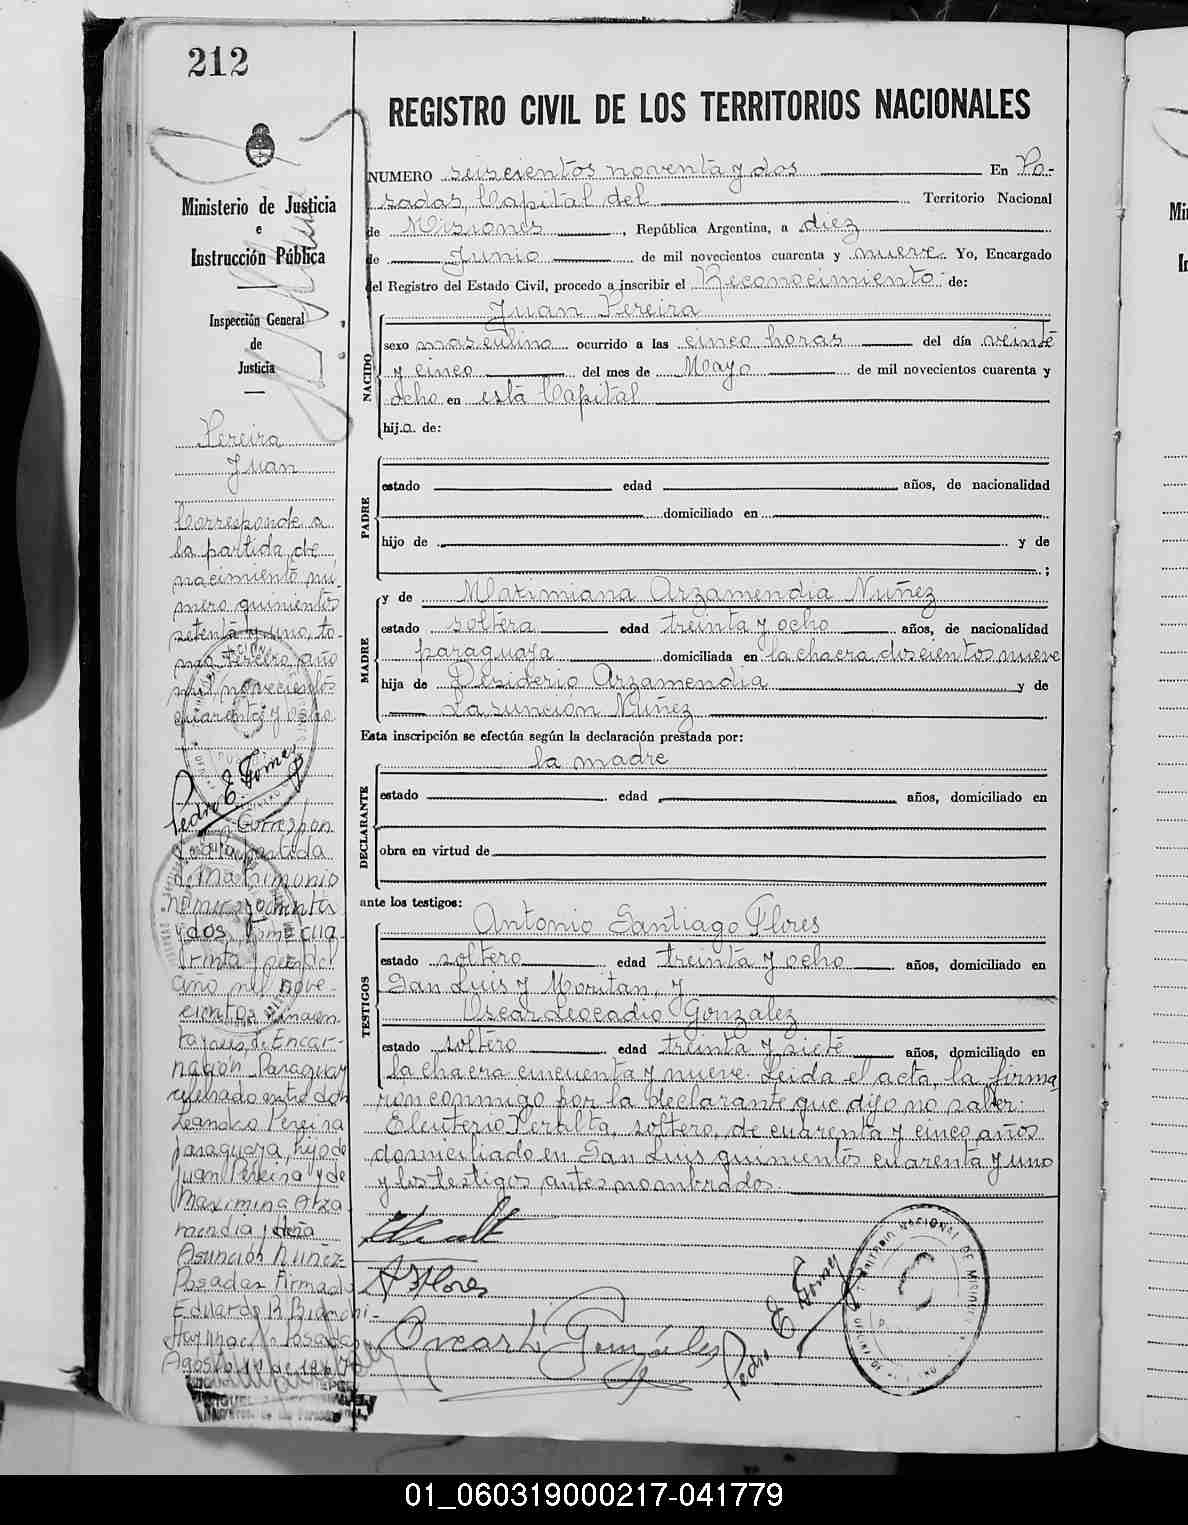 212
REGISTRO CIVIL DE LOS TERRITORIOS NACIONALES
Ministerio de Justicia
e
Instrucción Pública
Inspección General
de
Justicia
Pereira
Juan
Corresponde a
la partida de
nacimiento nú-
mero quinientos
setenta y uno, to-
mo tercero, año
mil novecientos
cuarenta y ocho.
Pedro E. Gómez
Correspon
de a la partida
de Matrimonio
número
y dos, Tomo cua-
renta y
año mil nove-
cientos cincuen-
ta y de Encar-
nación Paraguay
celebrado entre don
Leandro Pereira
paraguayo, hijo de
Juan Pereira y de
Maximina Arza
mendia y doña
Asunción Nuñez-
Posadas Firmado
Eduardo R. Bianchi-
Posadas
Agosto
NUMERO seiscientos noventa y dos En Po-
sadas, Capital del Territorio Nacional
de Misiones, República Argentina, a diez
de Junio de mil novecientos cuarenta y nueve. Yo, Encargado
del Registro del Estado Civil, procedo a inscribir el Reconocimiento de:
Juan Pereira
NACIDO
sexo masculino ocurrido a las cinco horas del día veinte
y cinco del mes de Mayo de mil novecientos cuarenta y
ocho en está Capital
hijo de:
PADRE
estado edad años, de nacionalidad
domiciliado en
hijo de y de
;
MADRE
y de Maximiana Arzamendia Nuñez
estado soltera edad treinta y ocho años, de nacionalidad
paraguaya domiciliada en la chacra doscientos nueve
hija de Desiderio Arzamendia y de
Lasunción Nuñez
Esta inscripción se efectúa según la declaración prestada por:
la madre
DECLARANTE
estado edad años, domiciliado en
obra en virtud de
ante los testigos:
TESTIGOS
Antonio Santiago Flores
estado soltero edad treinta y ocho años, domiciliado en
San Luis y Moritan, y
Oscar Leocadio Gonzalez
estado soltero edad treinta y siete años, domiciliado en
la chacra cincuenta y nueve. Leida el acta, la firma
ron conmigo por la declarante que dijo no saber:
Eleuterio Peralta, soltero, de cuarenta y cinco años
domiciliado en San Luis quinientos cuarenta y uno
y los testigos antes nombrados.
A S Flores
Oscar L. González
Pedro E. Gómez
01_060319000217-041779